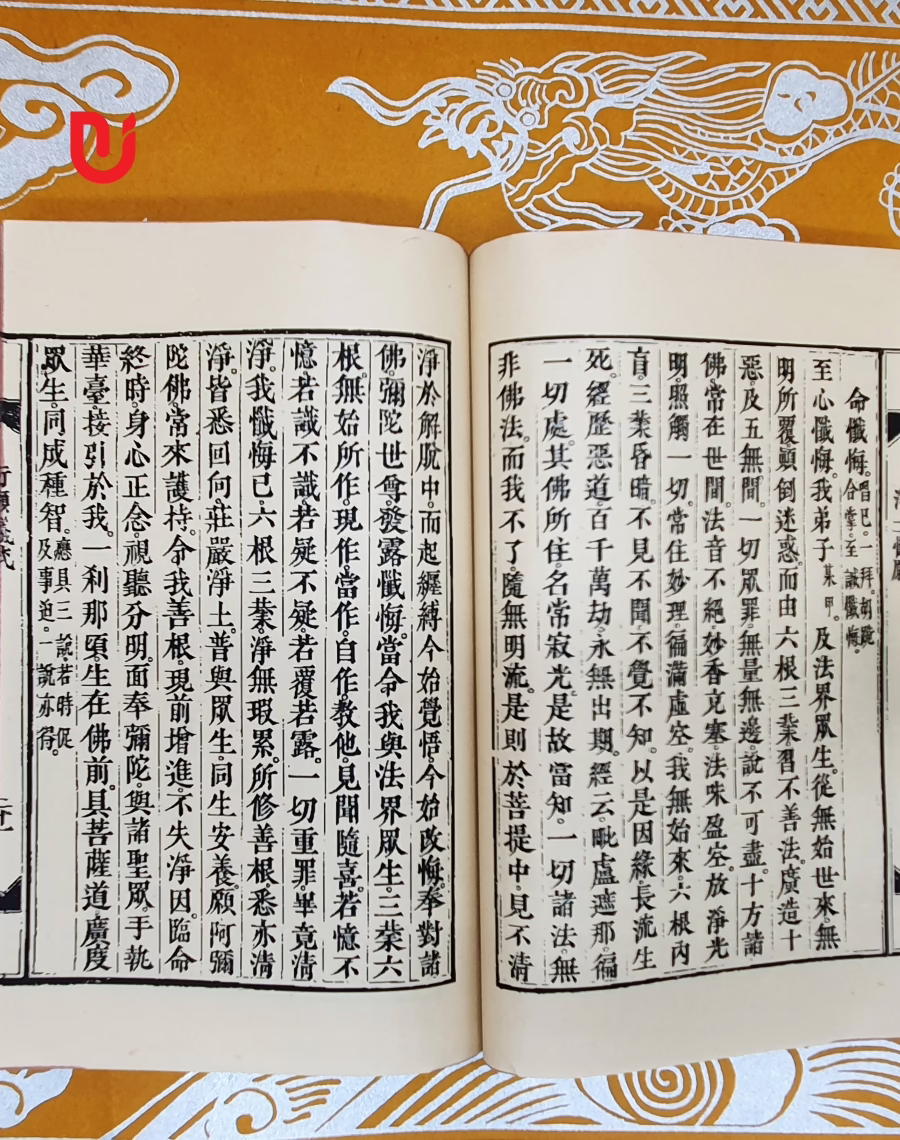 命懺悔。唱已。一拜。胡跪
合掌。至誠懺悔。
至心懺悔。我弟子某甲。及法界眾生。從無始世來。無
明所覆。顛倒迷惑。而由六根三業。習不善法。廣造十
惡。及五無間。一切眾罪。無量無邊。說不可盡。十方諸
佛。常在世間。法音不絕。妙香充塞。法味盈空。放淨光
明。照觸一切。常住妙理。徧滿虛空。我無始來。六根內
盲。三業昏暗。不見不聞。不覺不知。以是因緣。長流生
死。經歷惡道。百千萬劫。永無出期。經云。毗盧遮那。徧
一切處。其佛所住。名常寂光。是故當知。一切諸法。無
非佛法。而我不了。隨無明流。是則於菩提中。見不清
淨。於解脫中。而起纏縛。今始覺悟。今始改悔。奉對諸
佛。彌陀世尊。發露懺悔。當令我與法界眾生。三業六
根。無始所作。現作當作。自作教他。見聞隨喜。若憶不
憶。若識不識。若疑不疑。若覆若露。一切重罪。畢竟清
淨。我懺悔已。六根三業。淨無瑕累。所修善根。悉亦清
淨。皆悉回向。莊嚴淨土。普與眾生。同生安養。願阿彌
陀佛。常來護持。令我善根。現前增進。不失淨因。臨命
終時。身心正念。視聽分明。面奉彌陀。與諸聖眾。手執
華臺。接引於我。一剎那頃。生在佛前。具菩薩道。廣度
眾生。同成種智。應具三說。若時促
及事迫。一說亦得。